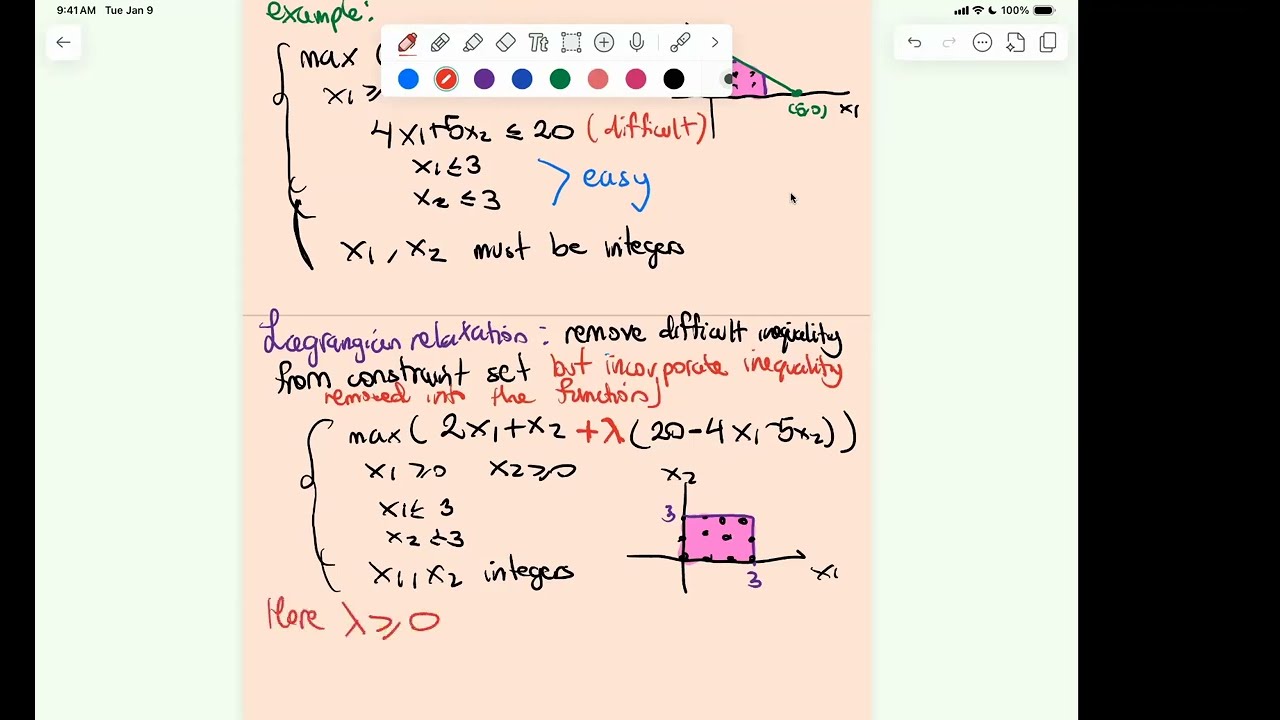 9:41AM Tue Jan 9
100%
example:
max (
Tt
x1 ≥
(5,0) x1
4x1+5x2 ≤ 20 (difficult)
x1 ≤ 3
x2 ≤ 3
> easy
x1, x2 must be integers
Lagrangian relaxation: remove difficult inequality
from constraint set but incorporate inequality
removed into the function)
max ( 2x1+x2 +λ (20-4x1-5x2))
x1 ≥0 x2≥0
x1≤ 3
x2 ≤3
x1, x2 integers
x2
3
3
x1
Here λ≥0